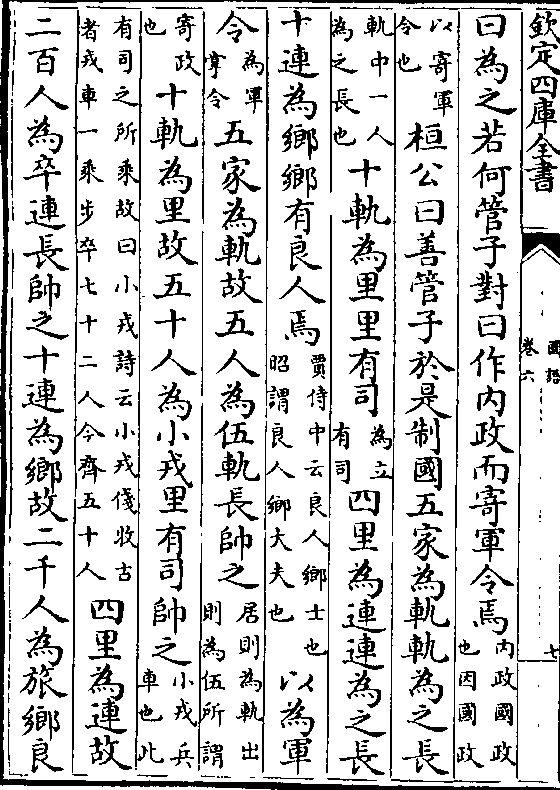 欽定四庫全書
國語
卷六
七
曰為之若何管子對曰作内政而寄軍令焉内政國政也因國政
以寄軍令也桓公曰善管子於是制國五家為軌軌為之長
軌中一人為之長也十軌為里里有司為立有司四里為連連為之長
十連為鄉鄉有良人焉賈侍中云良人鄉士也昭謂良人鄉大夫也以為軍
令為軍掌令五家為軌故五人為伍軌長帥之居則為軌出則為伍所謂
寄政也十軌為里故五十人為小戎里有司帥之小戎兵車也此
有司之所乘故曰小戎詩云小戎俴收古者戎車一乘步卒七十二人今齊五十人四里為連故
二百人為卒連長帥之十連為鄉故二千人為旅鄉良